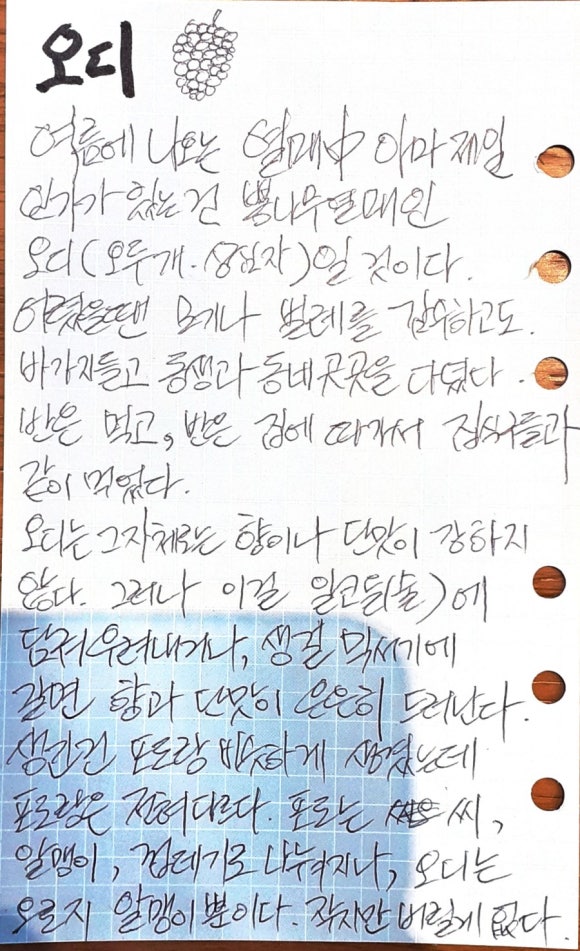 오디
여름에 나오는 열매中 아마 제일
인기가 있는건 뽕나무열매인
오디(오두개·상심자)일 것이다.
어렸을땐 모기나 벌레를 감수하고도.
바가지들고 동생과 동네곳곳을 다녔다.
반은 먹고, 반은 집에 따가서 집식구들과
같이 먹었다.
오디는 그자체로는 향이나 단맛이 강하지
않다. 그러나 이걸 알코올(술)에
담궈우려내거나, 생걸 믹서기에
갈면 향과 단맛이 은은히 드러난다.
생긴건 포도랑 비슷하게 생겼는데
포도랑은 전혀다르다. 포도는 씨,
알맹이, 껍데기로 나눠지나, 오디는
오로지 알맹이뿐이다. 작지만 버릴게 없다.